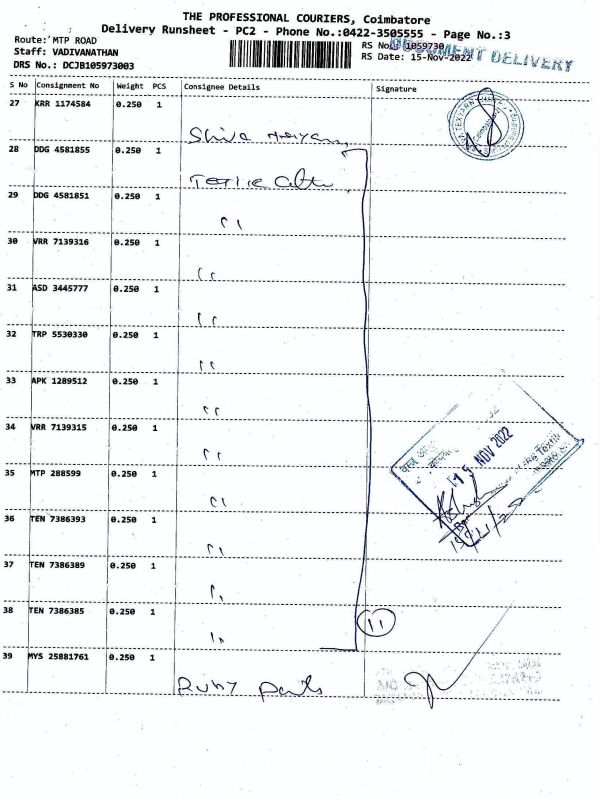 THE PROFESSIONAL COURIERS, Coimbatore
Delivery Runsheet - PC2 - Phone No.:0422-3505555 - Page No.:3
Route: MTP ROAD
RS No.: 1059730
DOCUMENT DELIVERY
Staff: VADIVANATHAN
RS Date: 15-Nov-2022
DRS No.: DCJB105973003
S No Consignment No Weight PCS Consignee Details Signature
27 KRR 1174584 0.250 1
Shiva
28 DDG 4581855 0.250 1
29 DDG 4581851 0.250 1
"
30 VRR 7139316 0.250 1
"
31 ASD 3445777 0.250 1
"
32 TRP 5530330 0.250 1
"
33 APK 1289512 0.250 1
"
34 VRR 7139315 0.250 1
"
15 NOV 2022
35 MTP 288599 0.250 1
"
36 TEN 7386393 0.250 1
"
37 TEN 7386389 0.250 1
"
38 TEN 7386385 0.250 1
11
"
39 MYS 25881761 0.250 1
Ruby